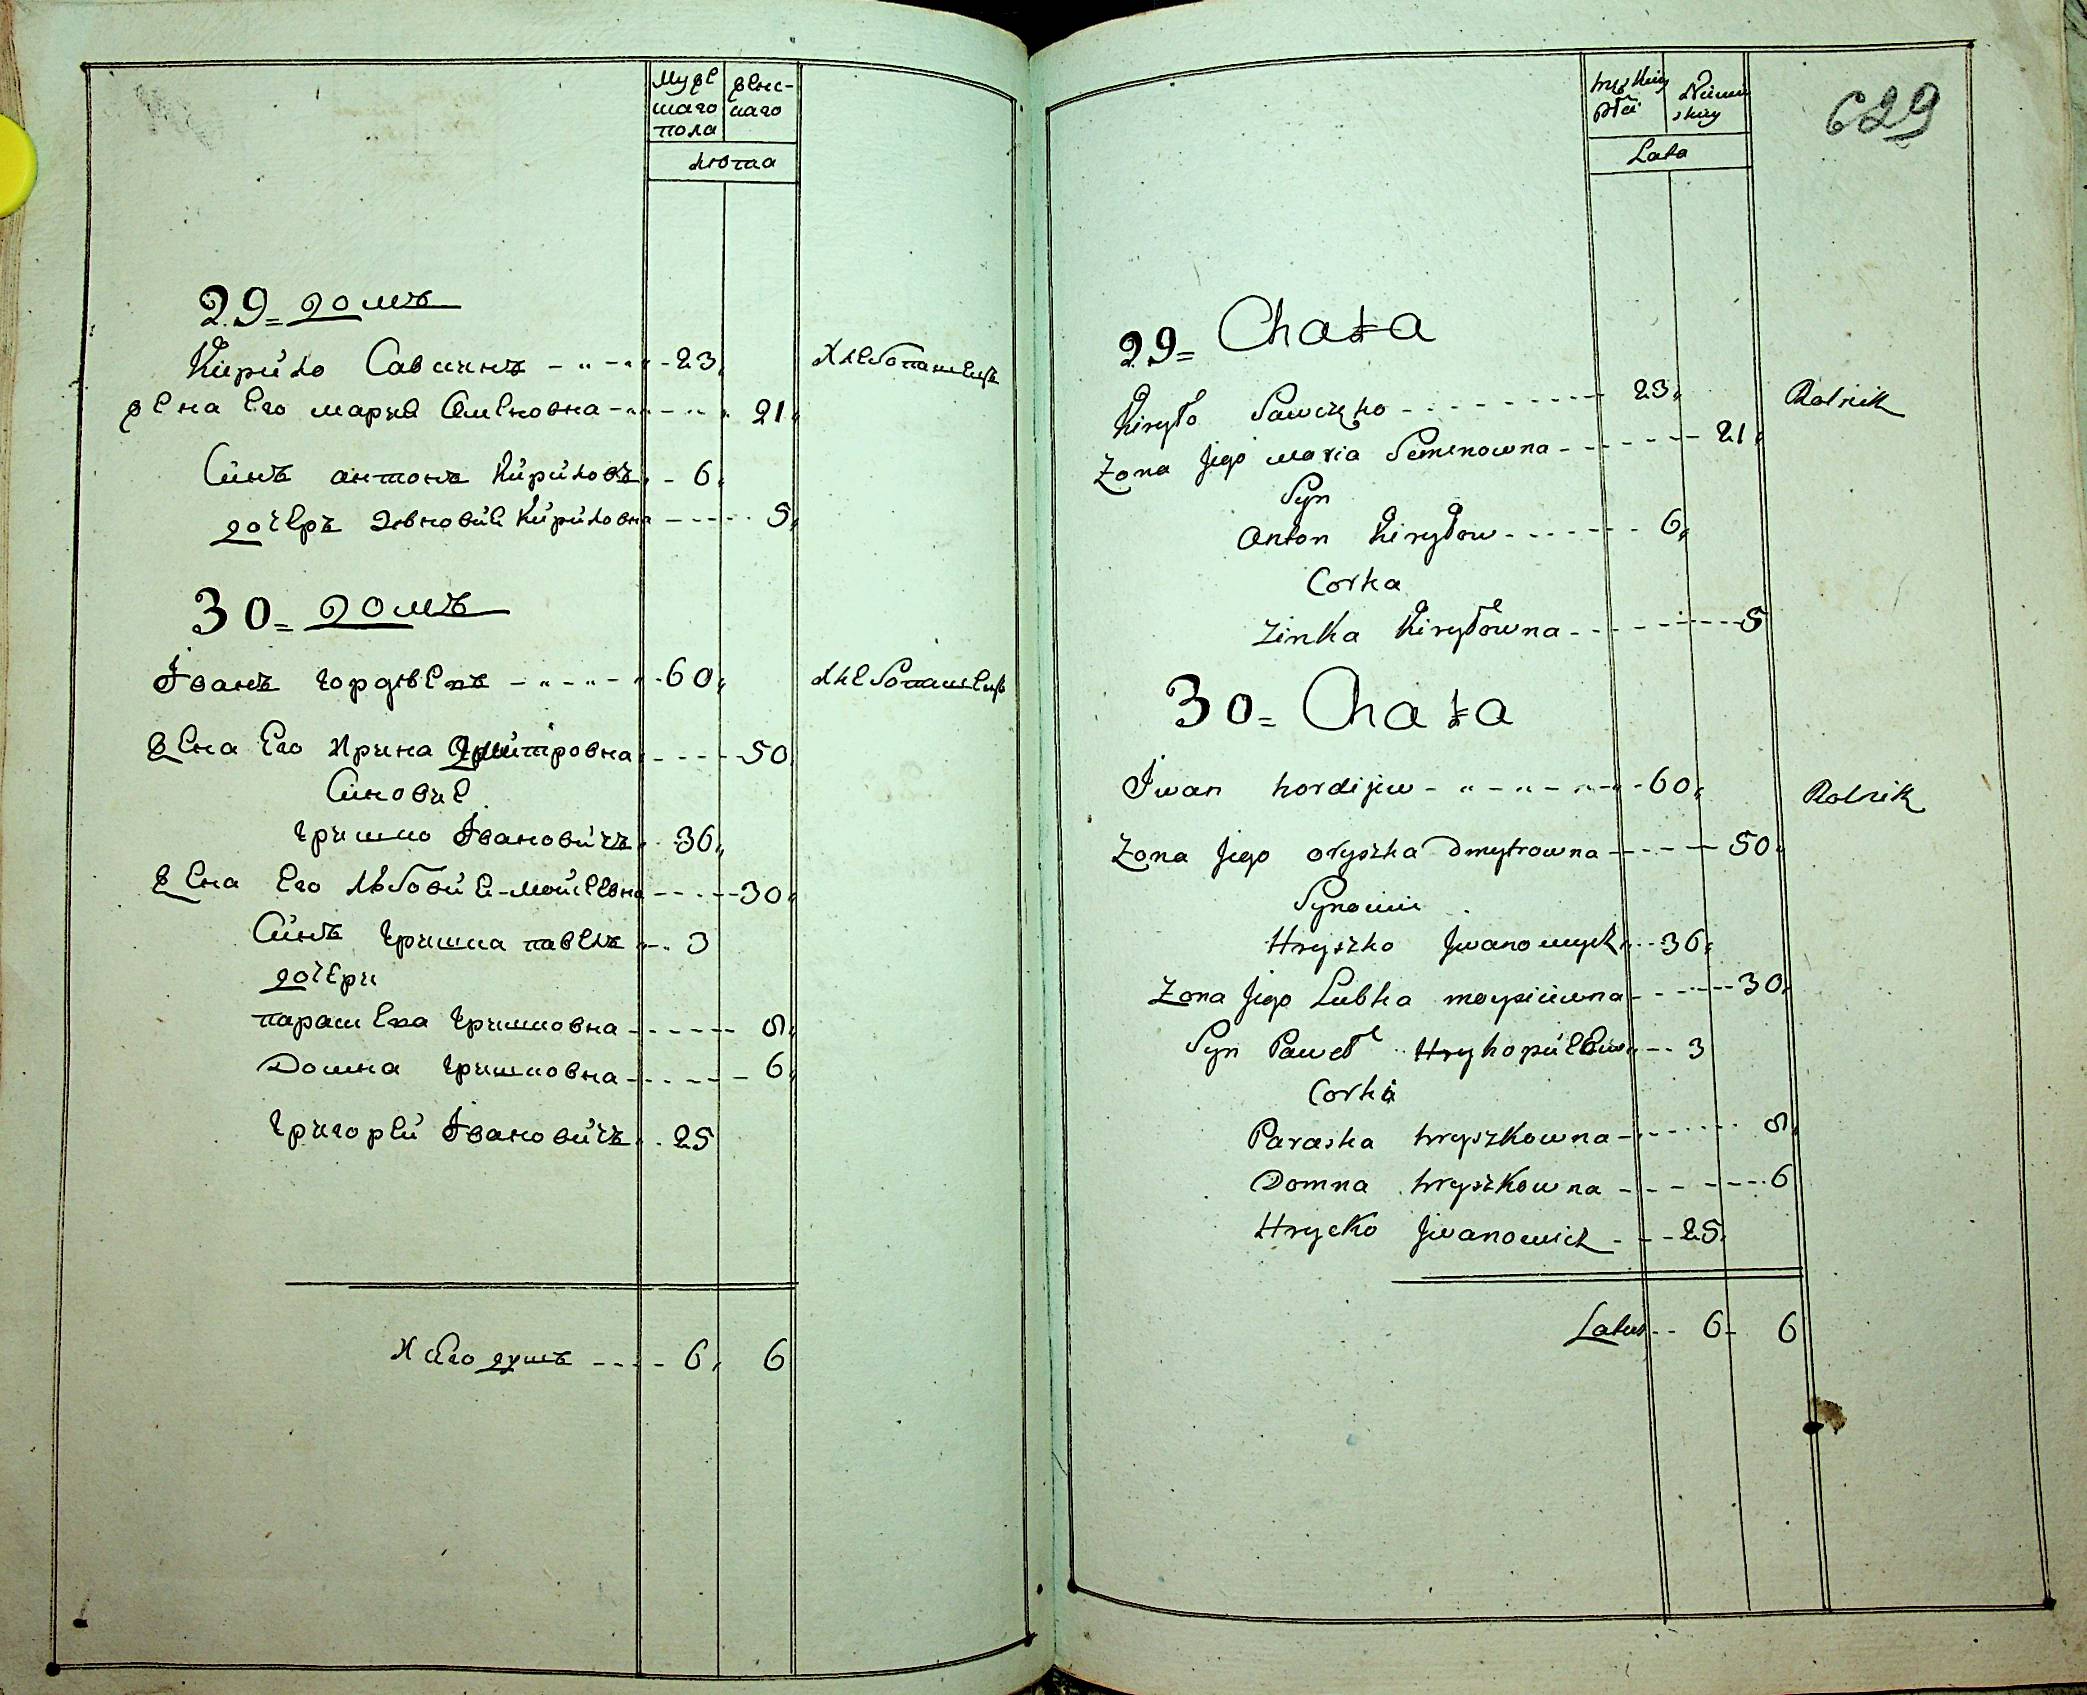 Мужe
шаго
пола
женс-
каго
лѣта
29= домъ
Кирило Савичинъ - 23
Хлебопашецъ
жена Его мария Семеновна - 21
Синъ антонъ Кириловъ - 6
дочеръ Зѣновия Кириловна - 5
30= домъ
Іванъ гордѣевъ - 60
Хлебопашецъ
жена Его Ирина Дмитровна - 50
Синовие
гришко Івановичъ - 36
жена Его Любовие-мойсеевна - 30
Синъ гришка павелъ - 3
дочери
парасковa гришковна - 8
Домна гришковна - 6
григорей Івановичъ - 25
Итого душъ - 6 6
629
męzkiey
płci
Niewi
skiey
Lata
29= Chata
Kiryło Sawczko - 23
Rolnik
Zona Jego maria Semenowna - 21
Syn
Anton Kiryłow - 6
Corka
Zinka Kiryłowna - 5
30= Chata
Iwan hordijew - 60
Rolnik
Zona Jego oryszka Dmytrowna - 50
Synowie
Hryszko Jwanowycz - 36
Zona Jego Lubka moysiiewna - 30
Syn Paweł - 3
Corki
Paraska hryszkowna - 8
Domna hryszkowna - 6
Hrycko Jwanowicz - 25
Latus - 6 - 6